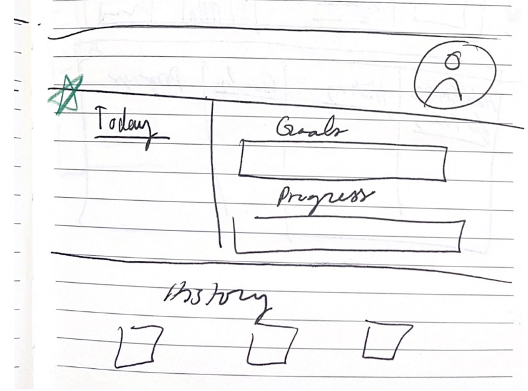 Today
Goals
Progress
History